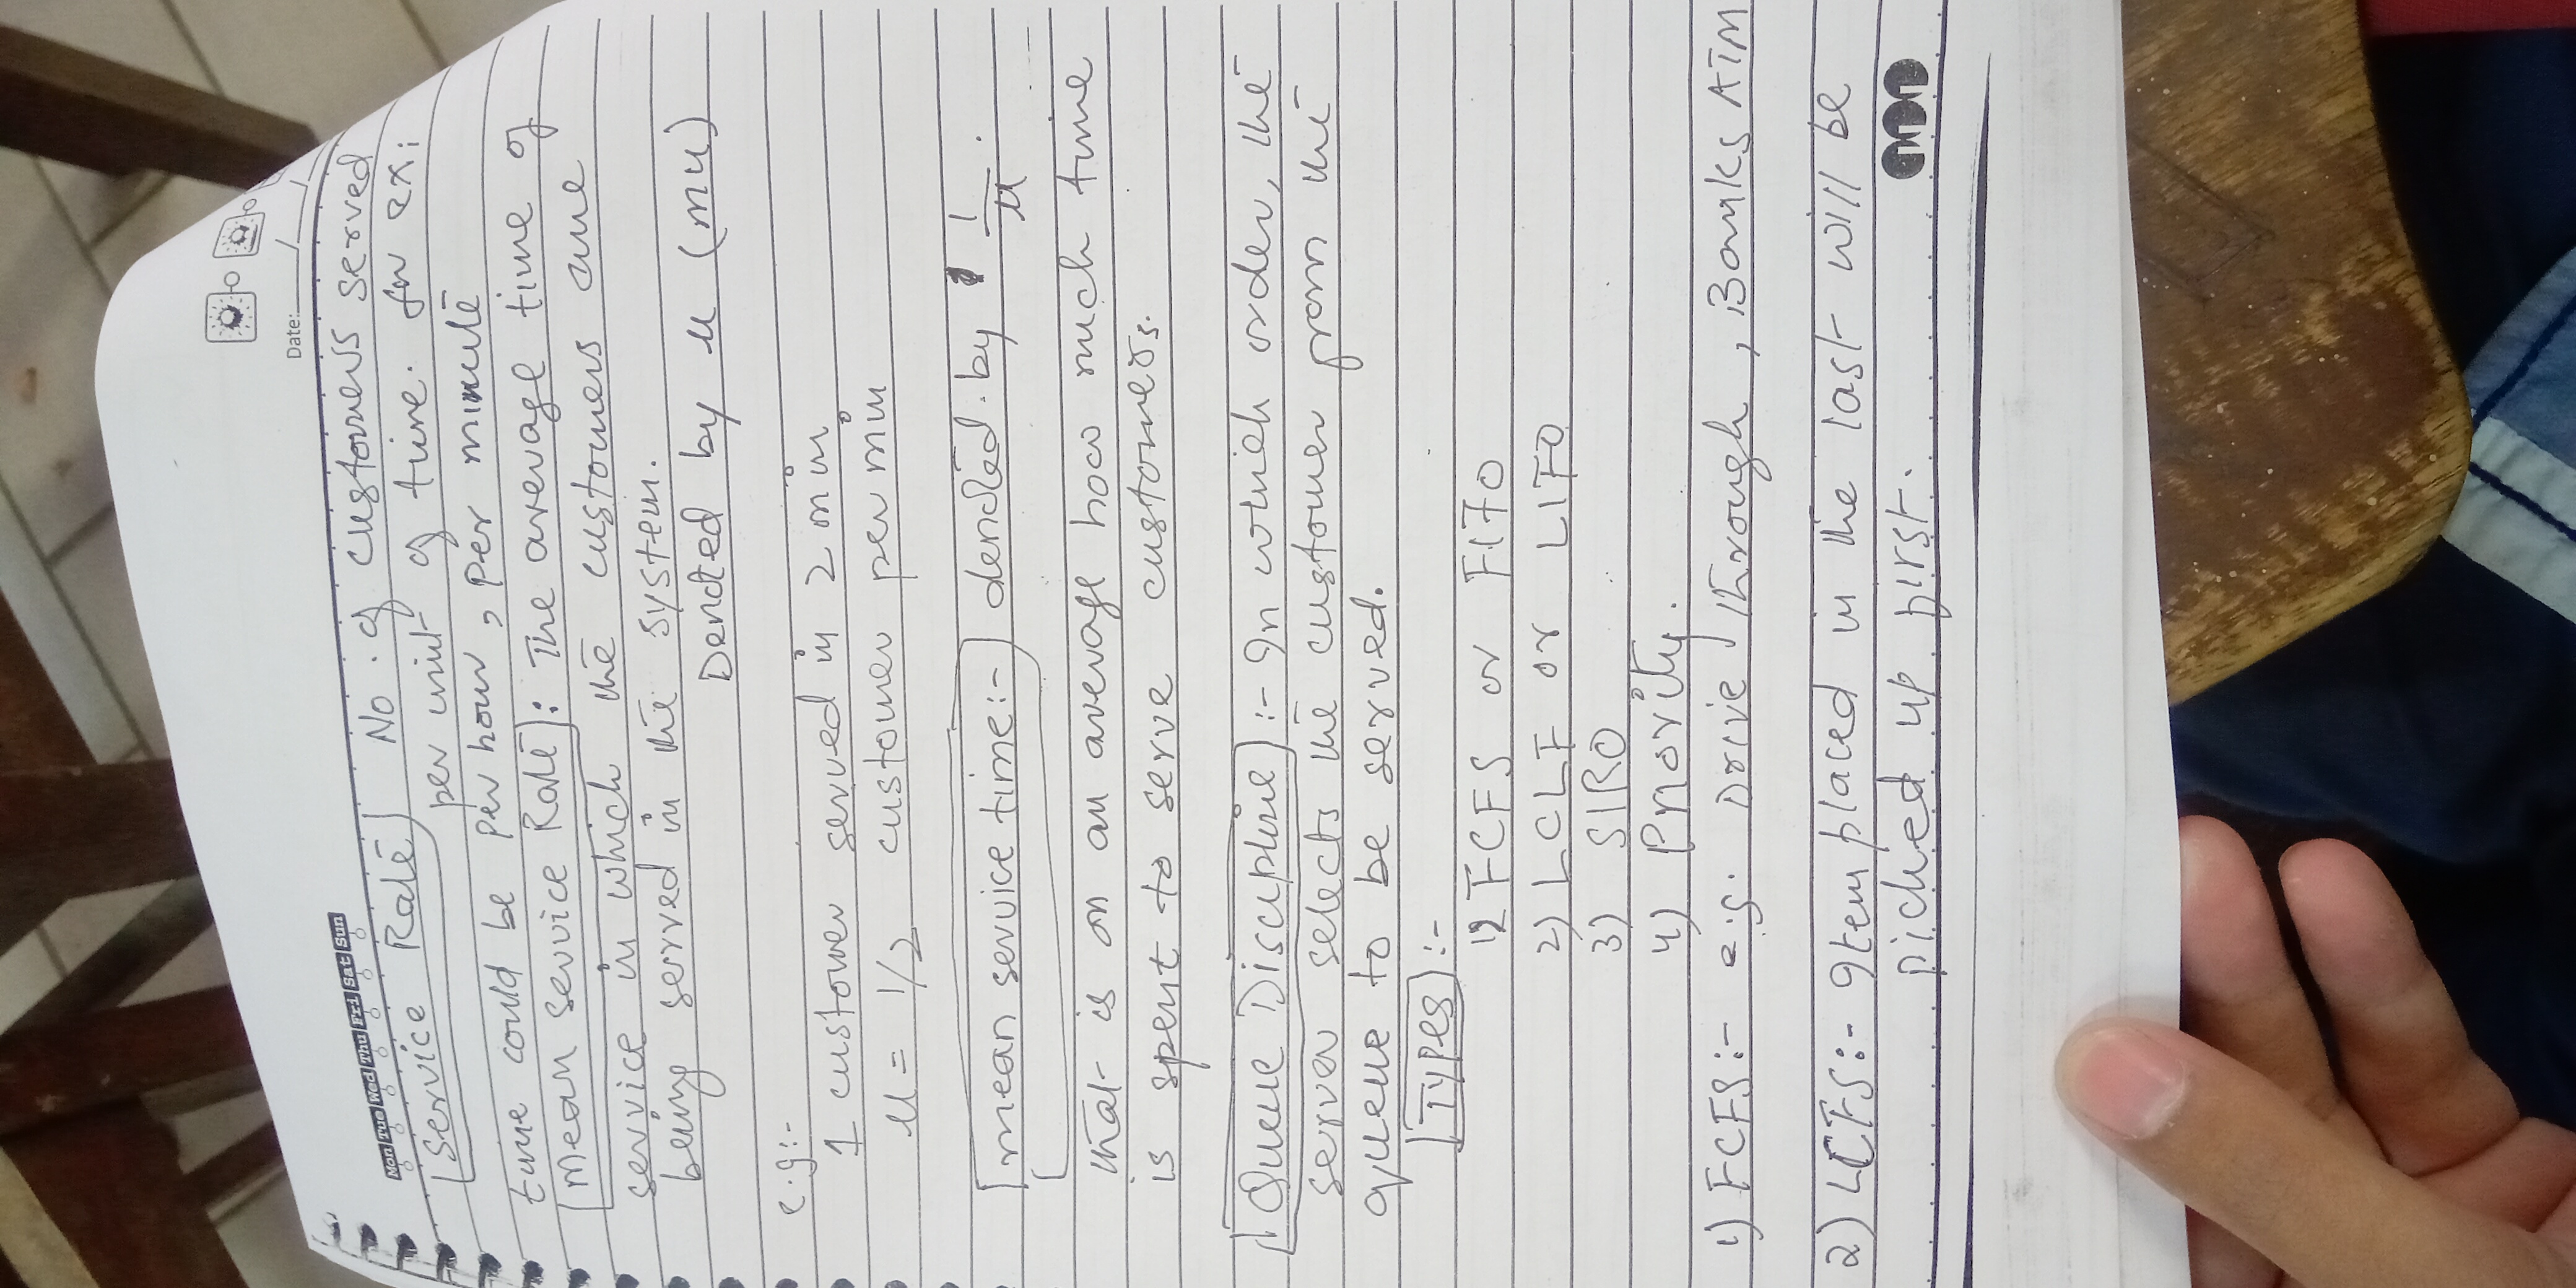 Date: / /
Mon Tue Wed Thu Fri Sat Sun
Service Rate No. of customers served
per unit of time. for ex:
time could be per hour, per minute
mean service Rate: The average time of
service in which the customers are
being served in the system.
Denoted by µ (mu)
e.g:-
1 customer served in 2 min
µ = 1/2 customer per min
mean service time:- denoted by 1/µ.
that is on an average how much time
is spent to serve customers.
Queue Discipline :- In which order, the
server selects the customer from the
queue to be served.
Types :-
1) FCFS or FIFO
2) LCLF or LIFO
3) SIRO
4) Priority.
1) FCFS:- e.g. Drive through, Banks ATM
2) LCFS:- Item placed in the last will be
picked up first.